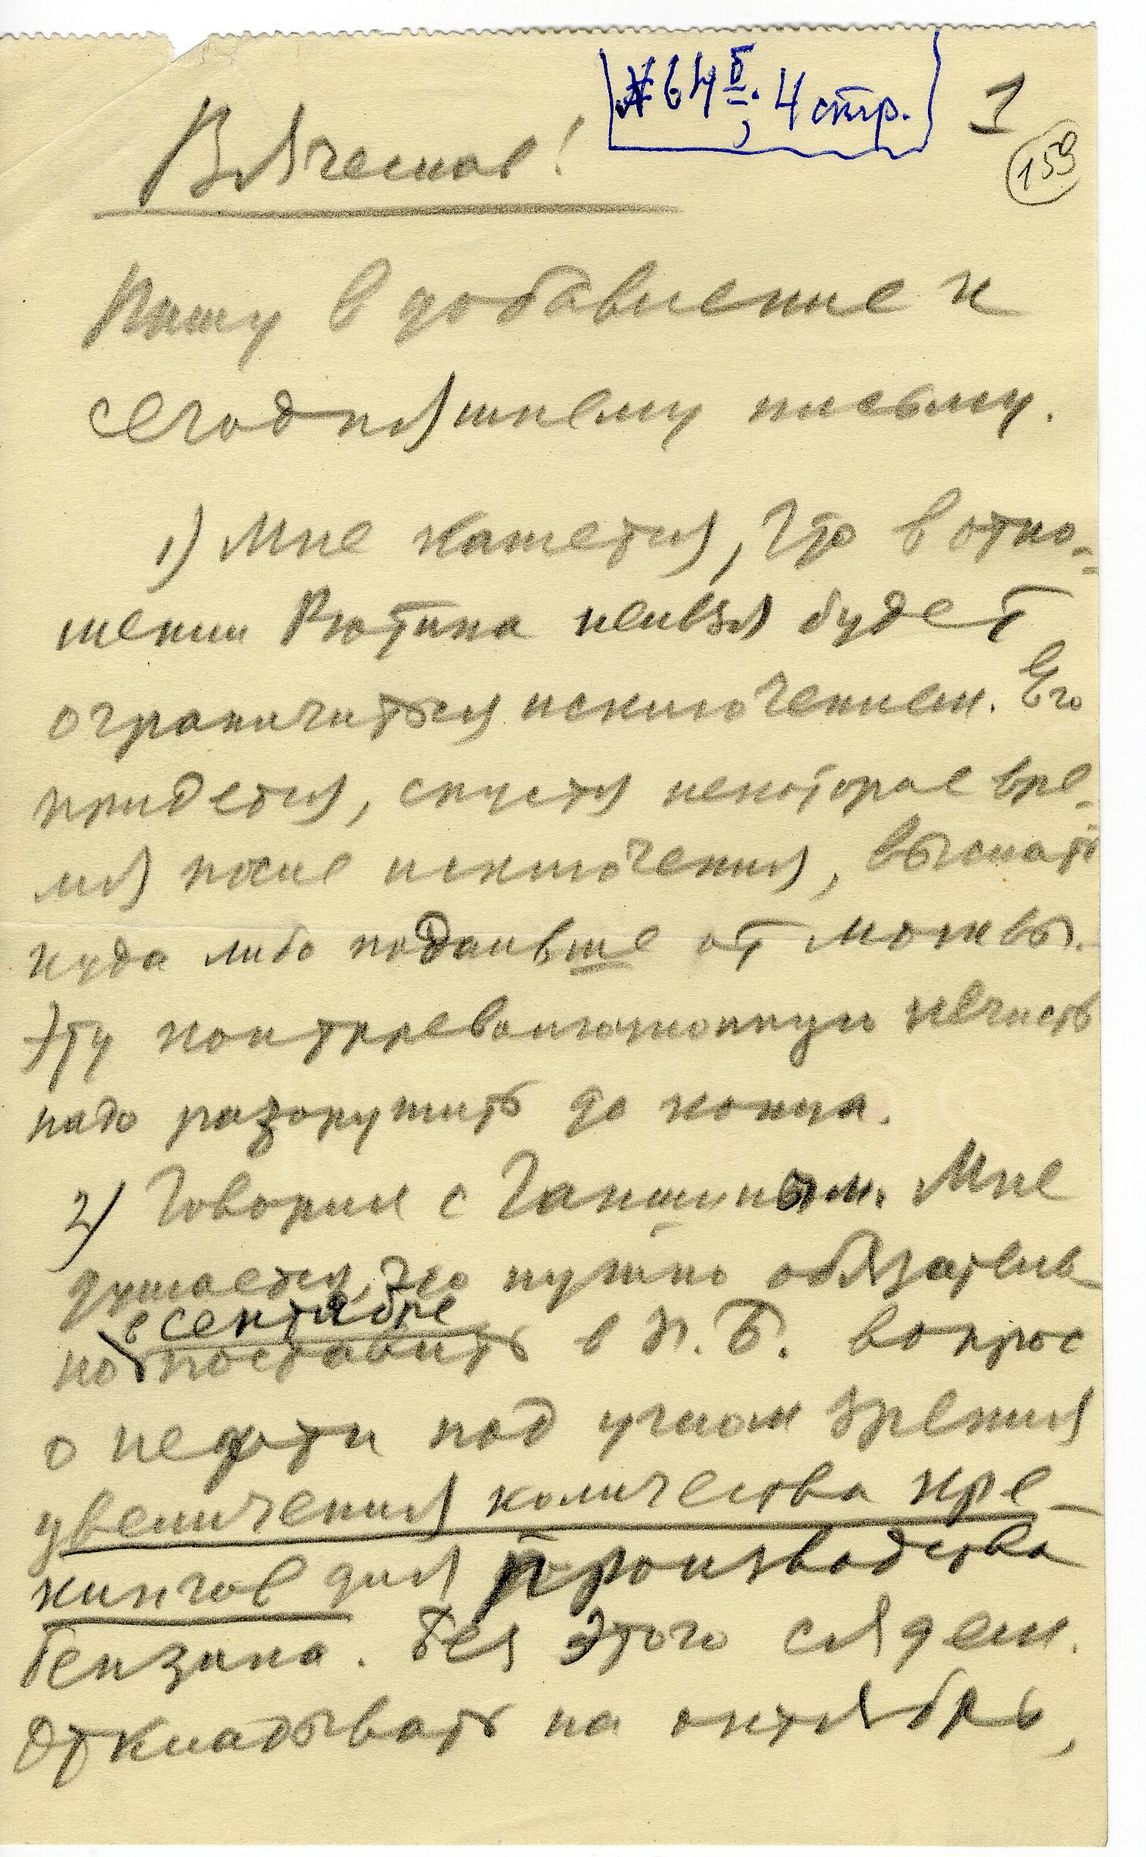 № 64 б; 4 стр.
1
159
Вячеслав!
Пишу в добавление к
сегодняшнему письму.
1) Мне кажется, что в отно-
шении Рютина нельзя будет
ограничиться исключением. Его
придется, спустя некоторое вре-
мя после исключения, выслать
куда либо подальше от Москвы.
Эту контрреволюционную нечисть
надо разоружить до конца.
2) Говорил с Ганшиным. Мне
думается, что нужно обязатель-
в сентябре
но поставить в П.Б. вопрос
о нефти под углом зрения
увеличения количества кре-
кингов для производства
бензина. Без этого сядем.
Откладывать на октябрь,